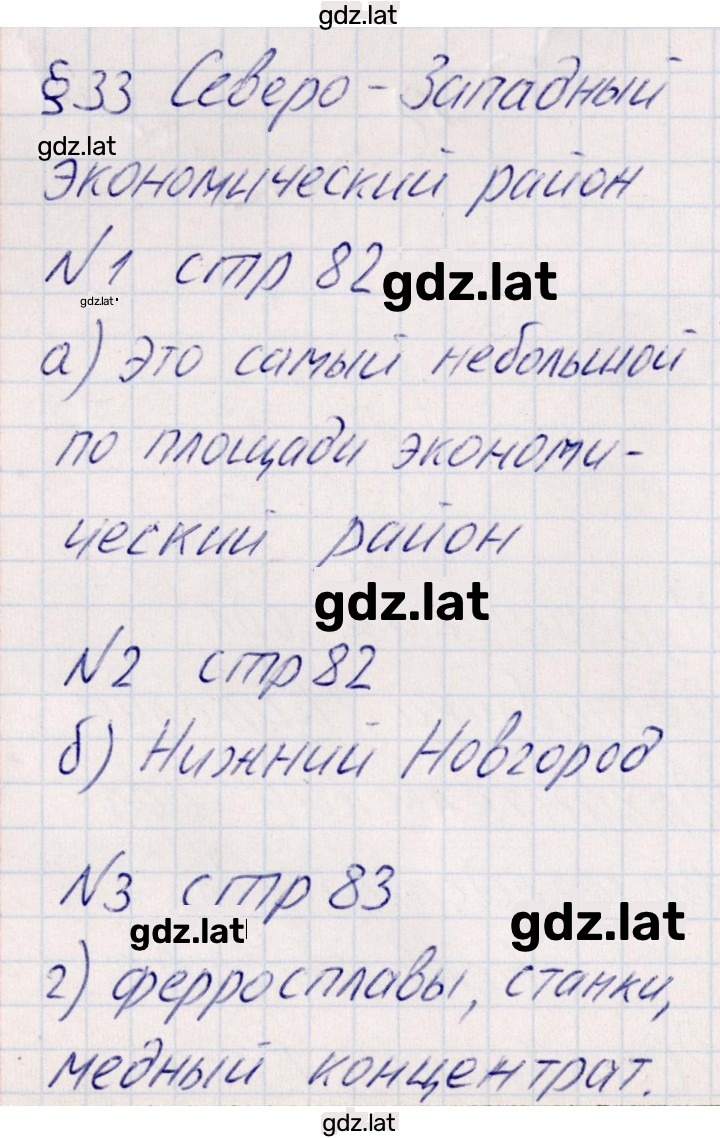 gdz.lat
§33 Северо-Западный
gdz.lat
экономический район
N1 стр 82 gdz.lat
gdz.lat
а) Это самый небольшой
по площади экономи-
ческий район
gdz.lat
N2 стр 82
б) Нижний Новгород
N3 стр 83
gdz.lat gdz.lat
г) ферросплавы, станки,
медный концентрат.
gdz.lat